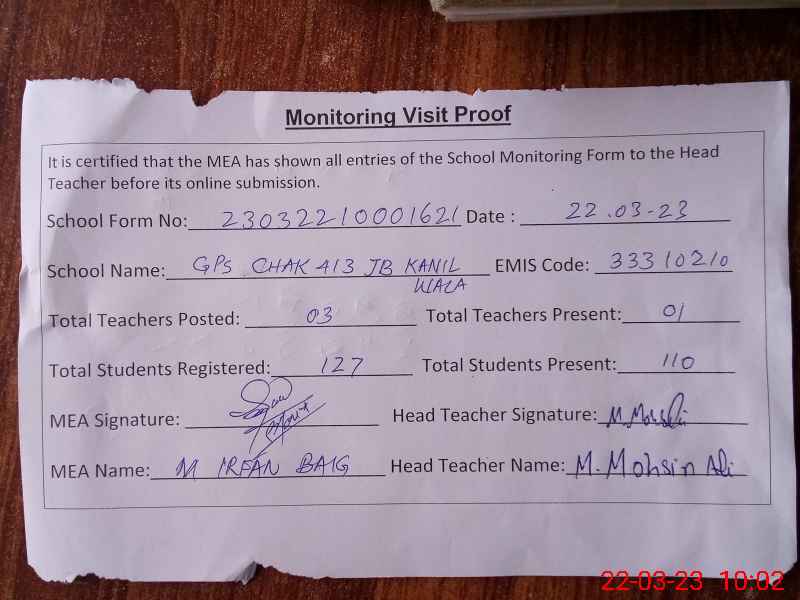 Monitoring Visit Proof
It is certified that the MEA has shown all entries of the School Monitoring Form to the Head
Teacher before its online submission.
School Form No: 23032210001621 Date : 22.03-23
School Name: GPS CHAK 413 JB KANIL EMIS Code: 33310210
WALA
Total Teachers Posted: 03 Total Teachers Present: 01
Total Students Registered: 127 Total Students Present: 110
MEA Signature: Head Teacher Signature:
MEA Name: M IRFAN BAIG Head Teacher Name: M. Mohsin Ali
22-03-23 10:02